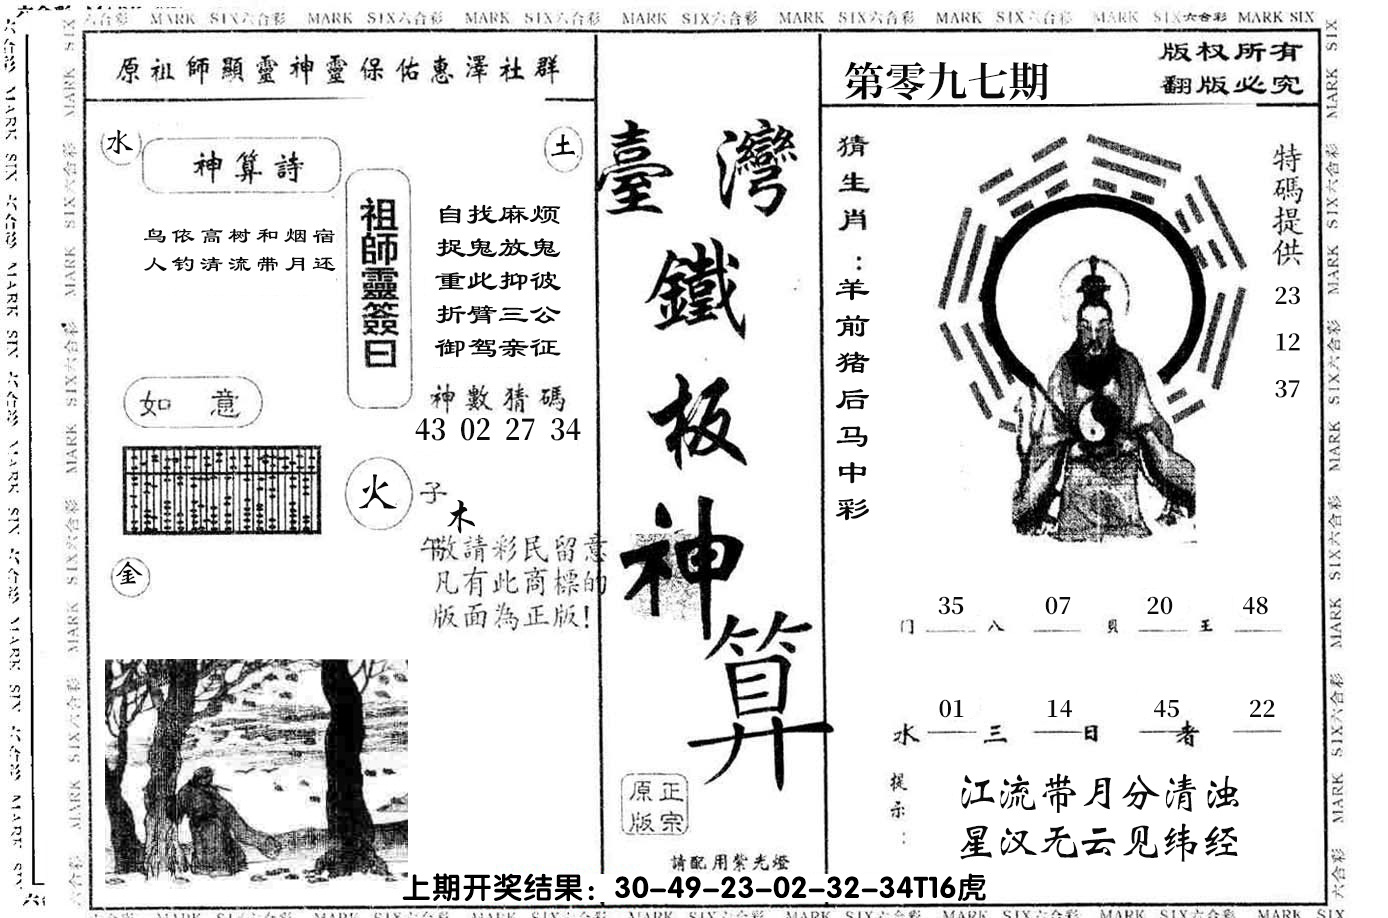 MARK SIX六合彩 MARK SIX六合彩 MARK SIX六合彩 MARK SIX六合彩 MARK SIX六合彩 MARK SIX六合彩 MARK SIX六合彩 MARK SIX
原祖師顯靈神靈保佑惠澤社群
水
神算詩
土
鸟依高树和烟宿
人钓清流带月还
祖師靈簽曰
自找麻烦
捉鬼放鬼
重此抑彼
折臂三公
御驾亲征
神數猜碼
43 02 27 34
如意
火
子
木
午
金
敬請彩民留意
凡有此商標的
版面為正版!
臺灣
鐵
板
神
算
正宗
原版
請配用紫光燈
第零九七期
版权所有
翻版必究
猜生肖:羊前猪后马中彩
特碼提供
23
12
37
35 07 20 48
门 八 贝 王
01 14 45 22
水 三 日 者
提示:
江流带月分清浊
星汉无云见纬经
上期开奖结果：30-49-23-02-32-34T16虎